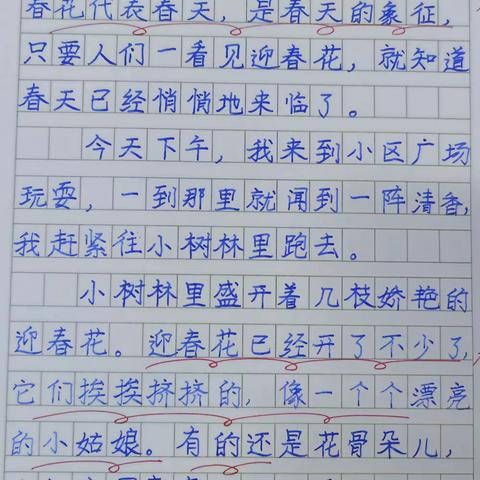 春花代表春天，是春天的象征，
只要人们一看见迎春花，就知道
春天已经悄悄地来临了。
今天下午，我来到小区广场
玩耍，一到那里就闻到一阵清香，
我赶紧往小树林里跑去。
小树林里盛开着几枝娇艳的
迎春花。迎春花已经开了不少了，
它们挨挨挤挤的，像一个个漂亮
的小姑娘。有的还是花骨朵儿，